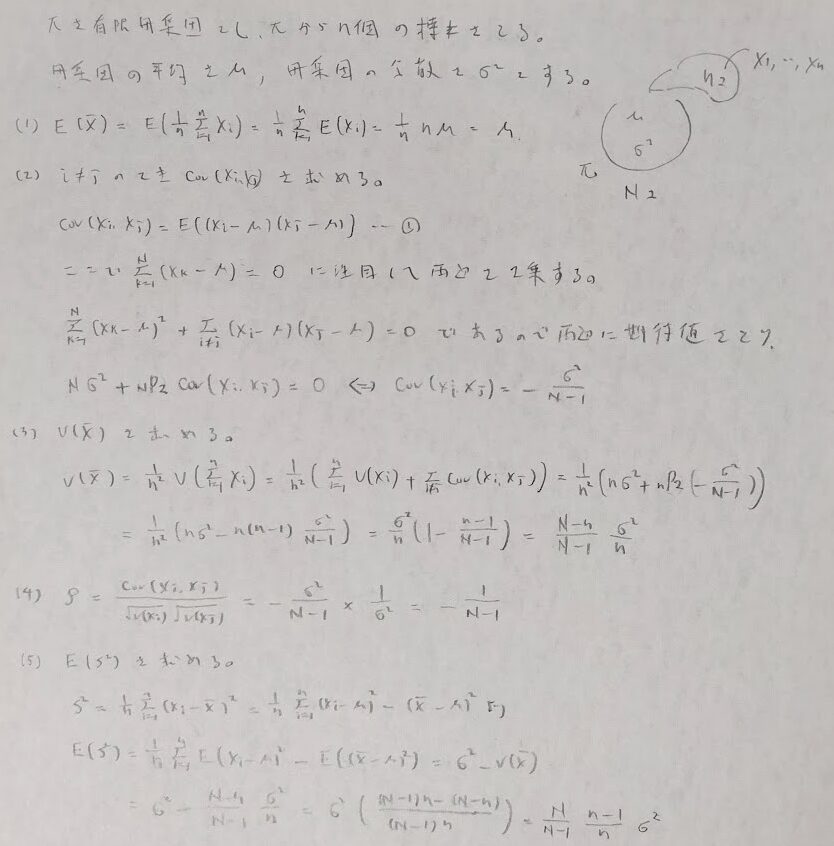 πを有限母集団とし、πからn個の標本をとる。
母集団の平均をμ, 母集団の分散をσ²とする。
n コ
X₁, ‥, Xₙ
μ
σ²
π
N コ
(1) E(X̄) = E(1/n Σ_{i=1}^{n} Xi) = 1/n Σ_{i=1}^{n} E(Xi) = 1/n nμ = μ
(2) i≠j のとき Cov(Xi,Xj) を求める。
Cov(Xi, Xj) = E((Xi-μ)(Xj-μ)) … ①
ここで Σ_{k=1}^{N} (Xk-μ) = 0 に注目して両辺を2乗する。
Σ_{k=1}^{N} (Xk-μ)² + Σ_{i≠j} (Xi-μ)(Xj-μ) = 0 であるので両辺に期待値をとり,
Nσ² + NP2 Cov(Xi, Xj) = 0 ⇔ Cov(Xi, Xj) = - σ²/(N-1)
(3) V(X̄) を求める。
V(X̄) = 1/n² V(Σ_{i=1}^{n} Xi) = 1/n² (Σ_{i=1}^{n} V(Xi) + Σ_{i≠j} Cov(Xi, Xj)) = 1/n² (nσ² + nP2 (- σ²/(N-1)))
= 1/n² (nσ² - n(n-1) σ²/(N-1)) = σ²/n (1 - (n-1)/(N-1)) = (N-n)/(N-1) σ²/n
(4) ρ = Cov(Xi, Xj)/(√V(Xi) √V(Xj)) = - σ²/(N-1) × 1/σ² = - 1/(N-1)
(5) E(S²) を求める。
S² = 1/n Σ_{i=1}^{n} (Xi-X̄)² = 1/n Σ_{i=1}^{n} (Xi-μ)² - (X̄-μ)² より
E(S²) = 1/n Σ_{i=1}^{n} E(Xi-μ)² - E((X̄-μ)²) = σ² - V(X̄)
= σ² - (N-n)/(N-1) σ²/n = σ² (((N-1)n - (N-n))/((N-1)n)) = N/(N-1) (n-1)/n σ²